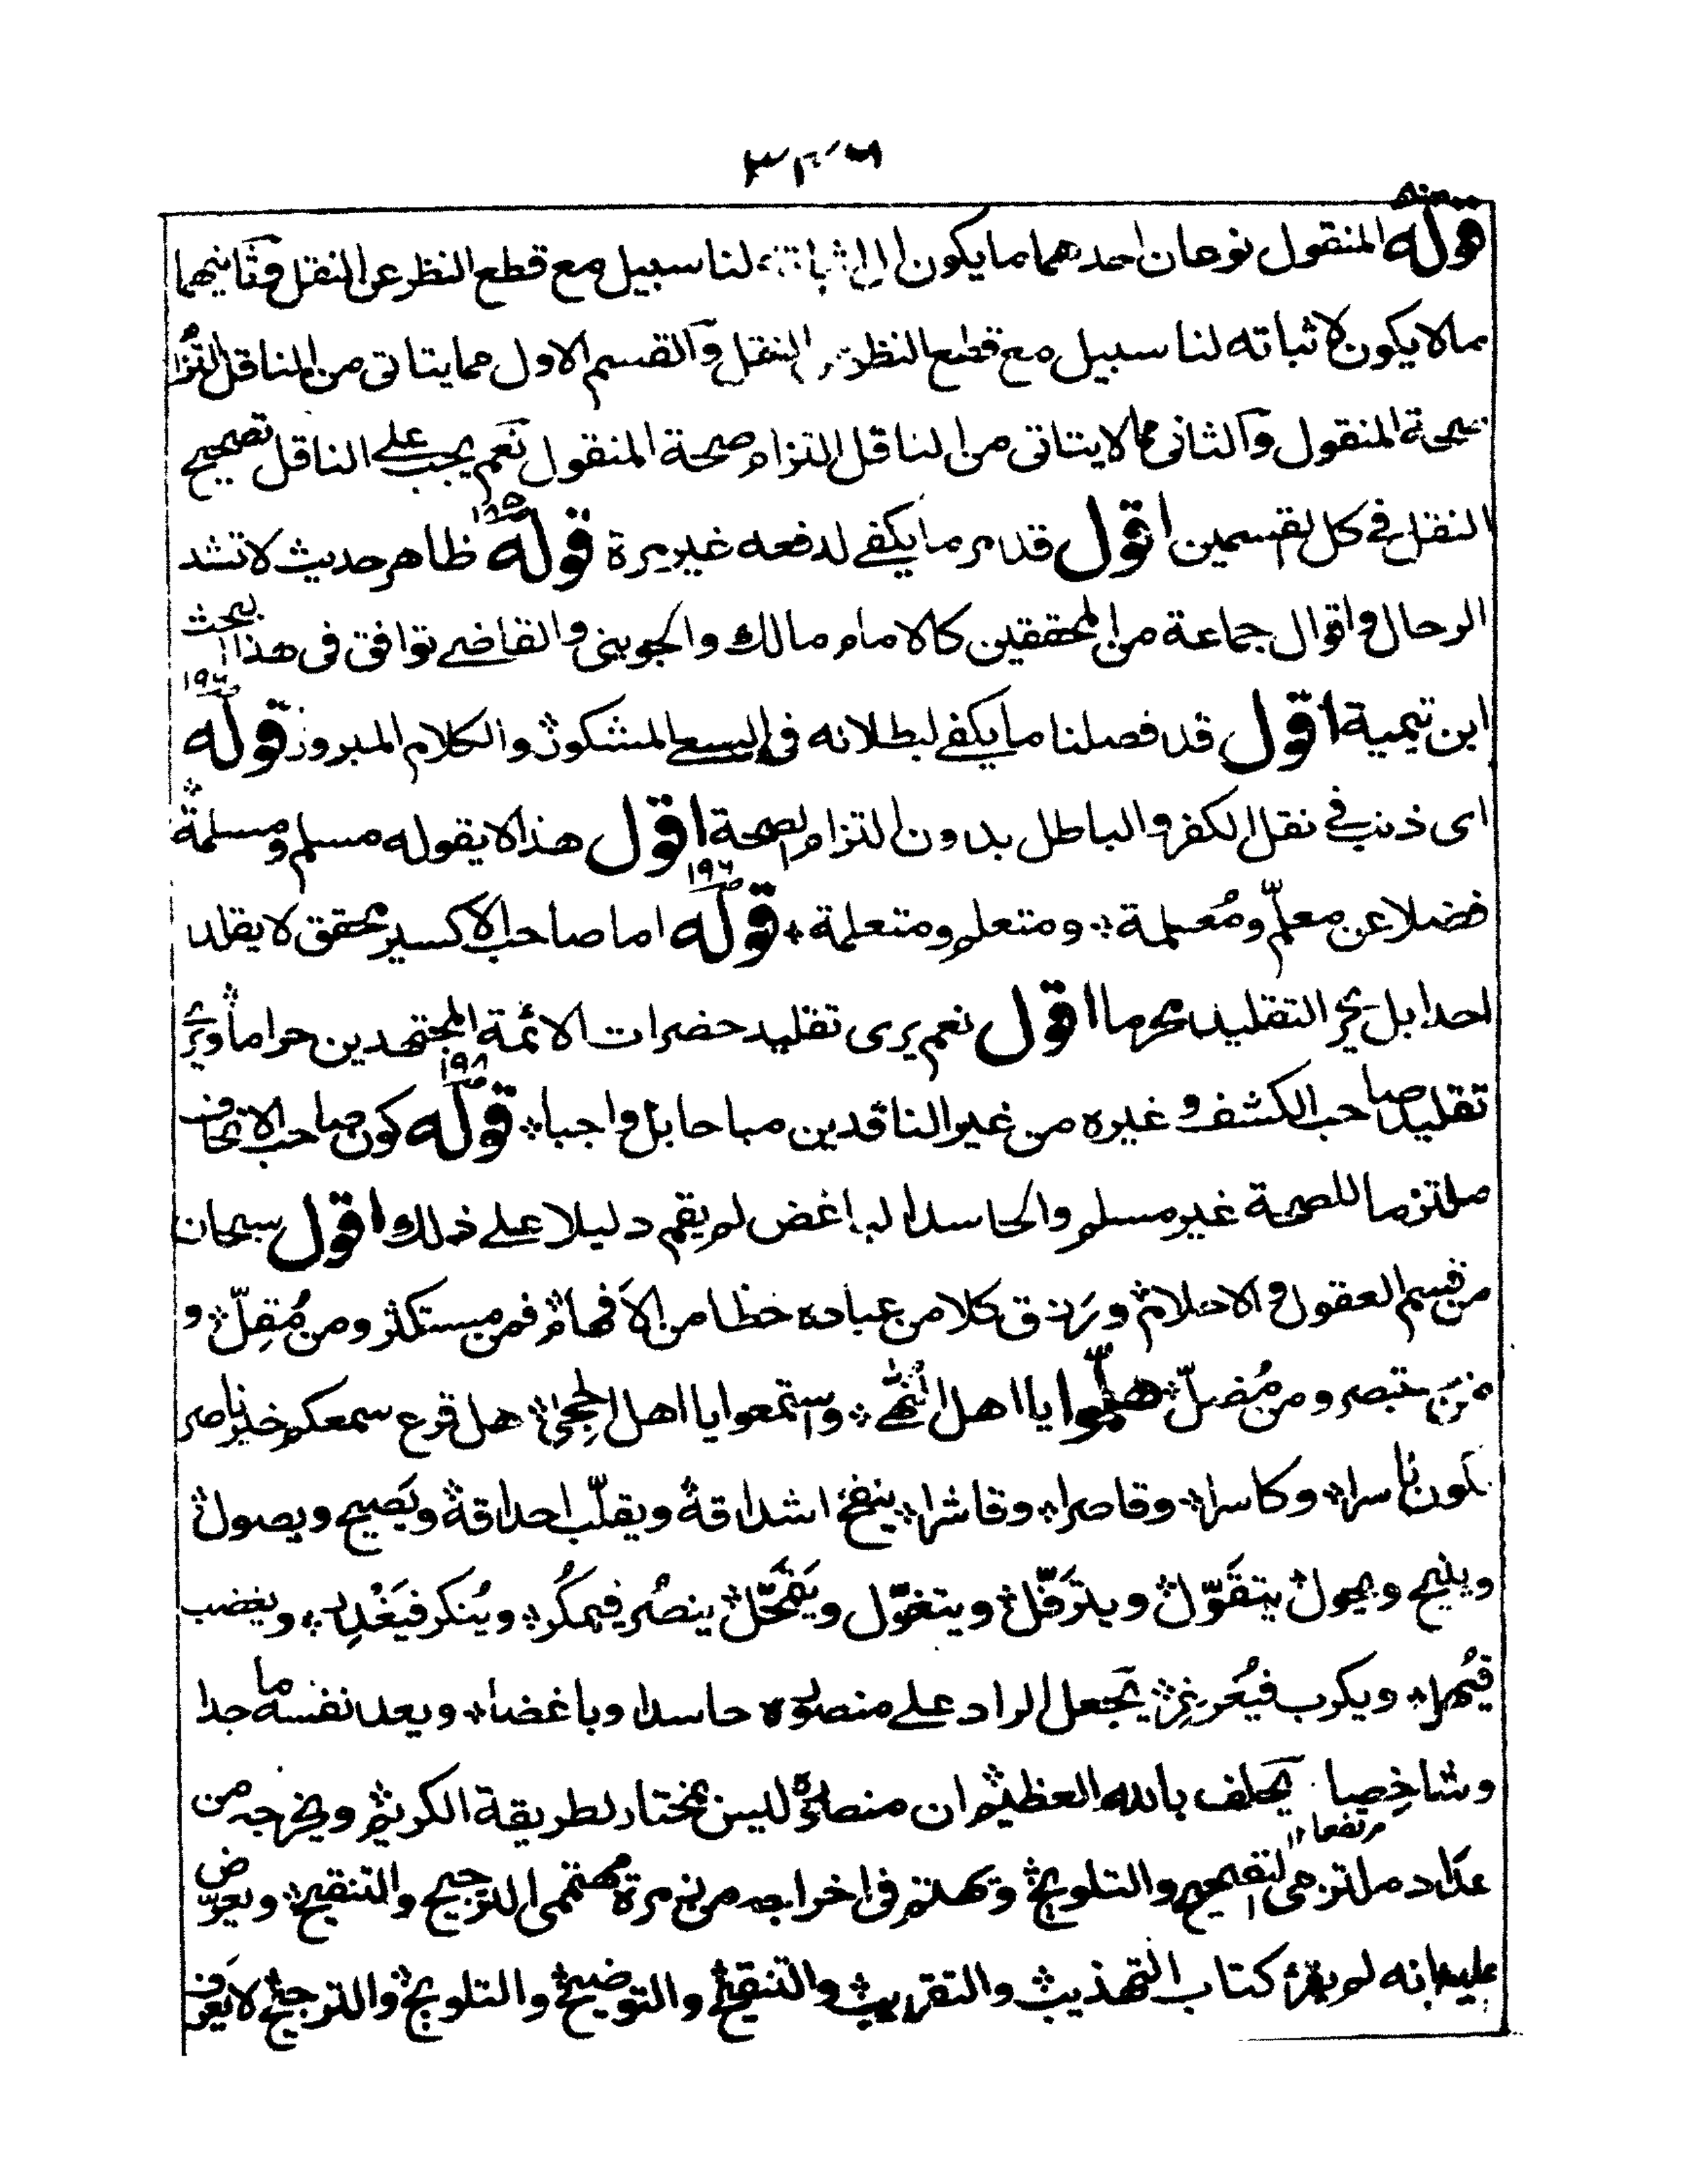 قوله المنقول نوعان احدهما ما يكون لنا سبيل مع قطع النظر عن النقل وثانيهما
ما لا يكون لاثباته لنا سبيل مع قطع النظر النقل والقسم الاول مما يتاتى من الناقل
المنقول والثانى مما لا يتاتى من الناقل التزام صحة المنقول نعم يجب على الناقل تصحيح
النقل فى كل القسمين اقول قد مر ما يكفے لدفعه غير مرة قوله ١٩٥ ظاهر حديث لا تشد
الرحال واقوال جماعة من المحققين كالامام مالك والجوينى والقاضے توافق فى هذا البحث
ابن تيمية اقول قد فصلنا ما يكفے لبطلانه فى السعے المشكور والكلام المبرور قوله ١٩٦
اى ذنب فے نقل الكفر والباطل بدون التزام الصحة اقول هذا لا يقوله مسلم ومسلمة
فضلا عن معلّم ومُعلمة ومتعلم ومتعلمة قوله ١٩٦ اما صاحب الاكسير محقق لا يقلد
احدا بل يحر التقليد محرما اقول نعم يرى تقليد حضرات الائمة المجتهدين حراما ويرى
تقليد صاحب الكشف وغيره من غير الناقدين مباحا بل واجبا قوله ١٩٨ كون صاحب الاتحاف
ملتزما للصحة غير مسلم والحاسد الباغض لم يقم دليلا علے ذلك اقول سبحان
من قسم العقول والاحلام ورَزق كلا من عباده حظا من الاَفهام فمن مستكثر ومن مُقِلّ و
من مستبصر ومن مُضلّ هلّموا يا اهل النُهے واستمعوا يا اهل الحِجٰى هل قرع سمعكم خبر ناصر
يكون ناسرا وكاسرا وقاصرا وقاشرا ينفخ اشداقة ويقلّب احداقة ويَصيح ويصول
ويليح ويجول يتقَوّل ويترَفّل ويتغوّل ويَتَمَحّل ينصُر فيمكُر ويُنكر فيَغْدِر ويغضب
ويكرب فيُعربِز يَجعل الراد علے منصوره حاسدا وباغضا ويعد نفسه ماجدا
وشاخِصا يَحلف بالله العظيم ان منصوره ليس بمختار لطريقة الكريم ويخرجه من
مرتفعا ١٢
عدَاد ملتزمى التصحيح والتلويح ويهتم فى اخراجه من زمرة مهتممى الترجيح والتنقيح ويعرّض
عليه بانه لم يقرأ كتاب التهذيب والتقريب والتنقيح والتوضيح والتلويح والترجيح لا يعرَف